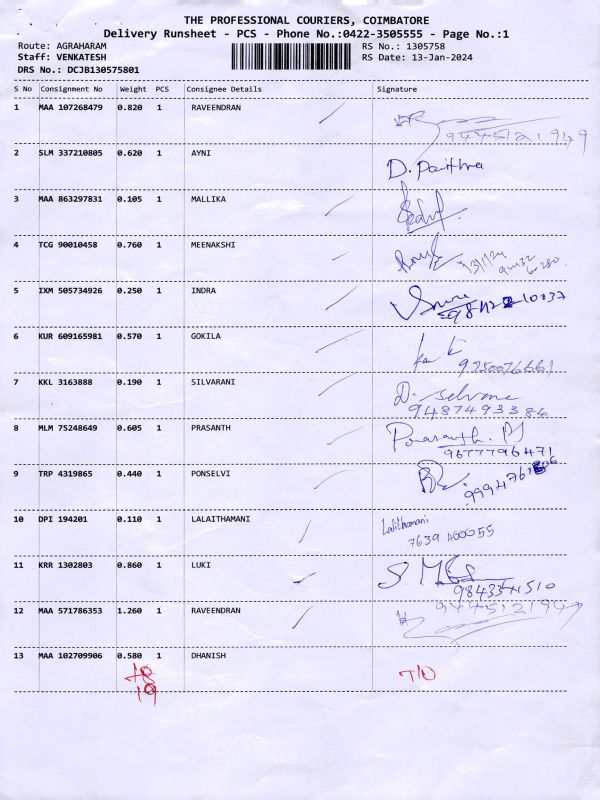 THE PROFESSIONAL COURIERS, COIMBATORE
Delivery Runsheet - PCS - Phone No.:0422-3505555 - Page No.:1
Route: AGRAHARAM RS No.: 1305758
Staff: VENKATESH RS Date: 13-Jan-2024
DRS No.: DCJB130575801
S No Consignment No Weight PCS Consignee Details Signature
1 MAA 107268479 0.820 1 RAVEENDRAN
9445121949
2 SLM 337210805 0.620 1 AYNI D. Paithra
3 MAA 863297831 0.105 1 MALLIKA
4 TCG 90010458 0.760 1 MEENAKSHI
13/1/24
5 IXM 505734926 0.250 1 INDRA
6 KUR 609165981 0.570 1 GOKILA
9750076661
7 KKL 3163888 0.190 1 SILVARANI D. Selvine
9487493386
8 MLM 75248649 0.605 1 PRASANTH Prasanth. PJ
9677796471
9 TRP 4319865 0.440 1 PONSELVI
10 DPI 194201 0.110 1 LALAITHAMANI Lalithamani
7639 100055
11 KRR 1302803 0.860 1 LUKI
9843341510
12 MAA 571786353 1.260 1 RAVEENDRAN 9445121949
13 MAA 102709906 0.580 1 DHANISH T/D
+8
19